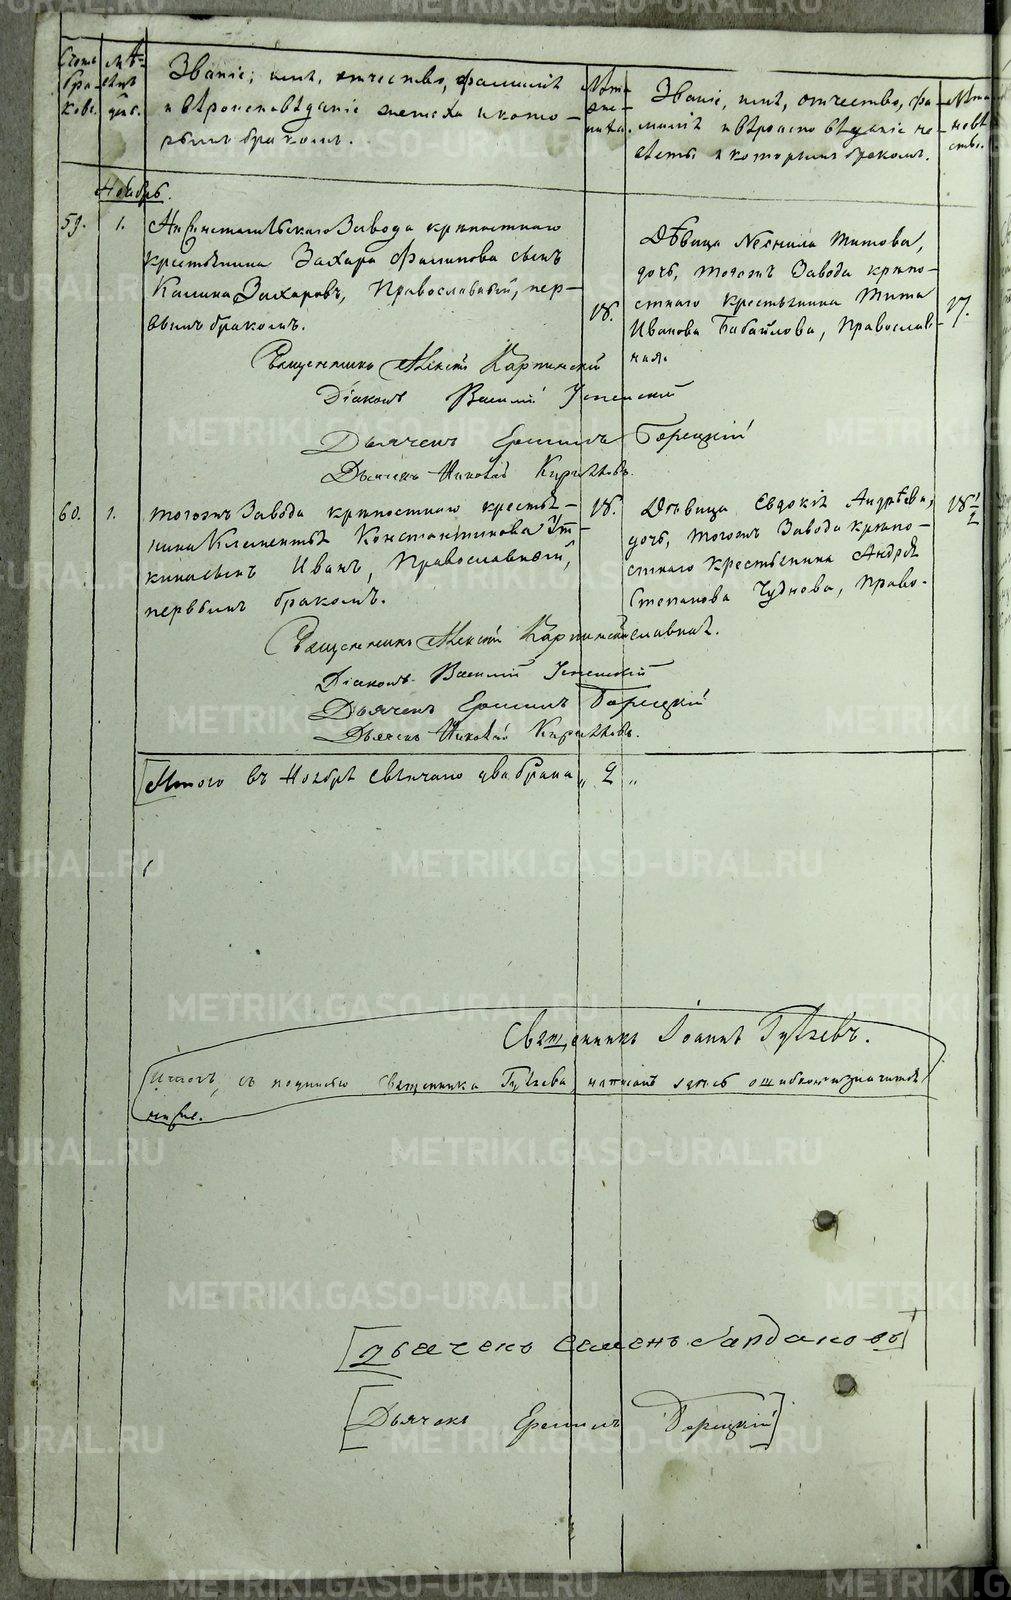 Счетъ браковъ.
Мѣсяцъ и день.
Званіе, имя, отчество, фамилія
и вѣроисповѣданіе жениха и кото-
рымъ бракомъ.
Лѣта жениха.
Званіе, имя, отчество, фа-
милія и вѣроисповѣданіе не-
вѣсты и которымъ бракомъ.
Лѣта невѣсты.
Ноябрь.
59.
1.
Завода крѣпостнаго
крестьянина Захара Филипова сынъ
Калина Захаровъ, Православный, пер-
вымъ бракомъ.
18.
Дѣвица Неонила Титова,
дочь, тогожъ Завода крѣпо-
стнаго крестьянина Тита
Иванова Бабайлова, Православ-
ная.
17.
Священникъ Алексій Карпинскій
Діаконъ Василій Успенскій
Дьячекъ Ермилъ Борецкій
Дьячекъ Николай
60.
1.
тогожъ Завода крѣпостнаго крестья-
нина Климентія Константинова Ут-
кина сынъ Иванъ, Православный,
первымъ бракомъ.
18.
Дѣвица Евдокія Андрѣева,
дочь, тогожъ Завода крѣпо-
стнаго крестьянина Андрея
Степанова Чуднова, Право-
славная.
18 1/2
Священникъ Алексій Карпинскій
Діаконъ Василій Успенскій
Дьячекъ Ермилъ Борецкій
Дьячекъ Николай
Итого въ Ноябрѣ вѣнчано два брака „ 2 „
Священникъ Іоаннъ Гуляевъ.
съ подписью Священника Гуляева, написанъ здѣсь ошибкою
Дьячекъ Семенъ
Дьячокъ Ермилъ Борецкій
METRIKI.GASO-URAL.RU